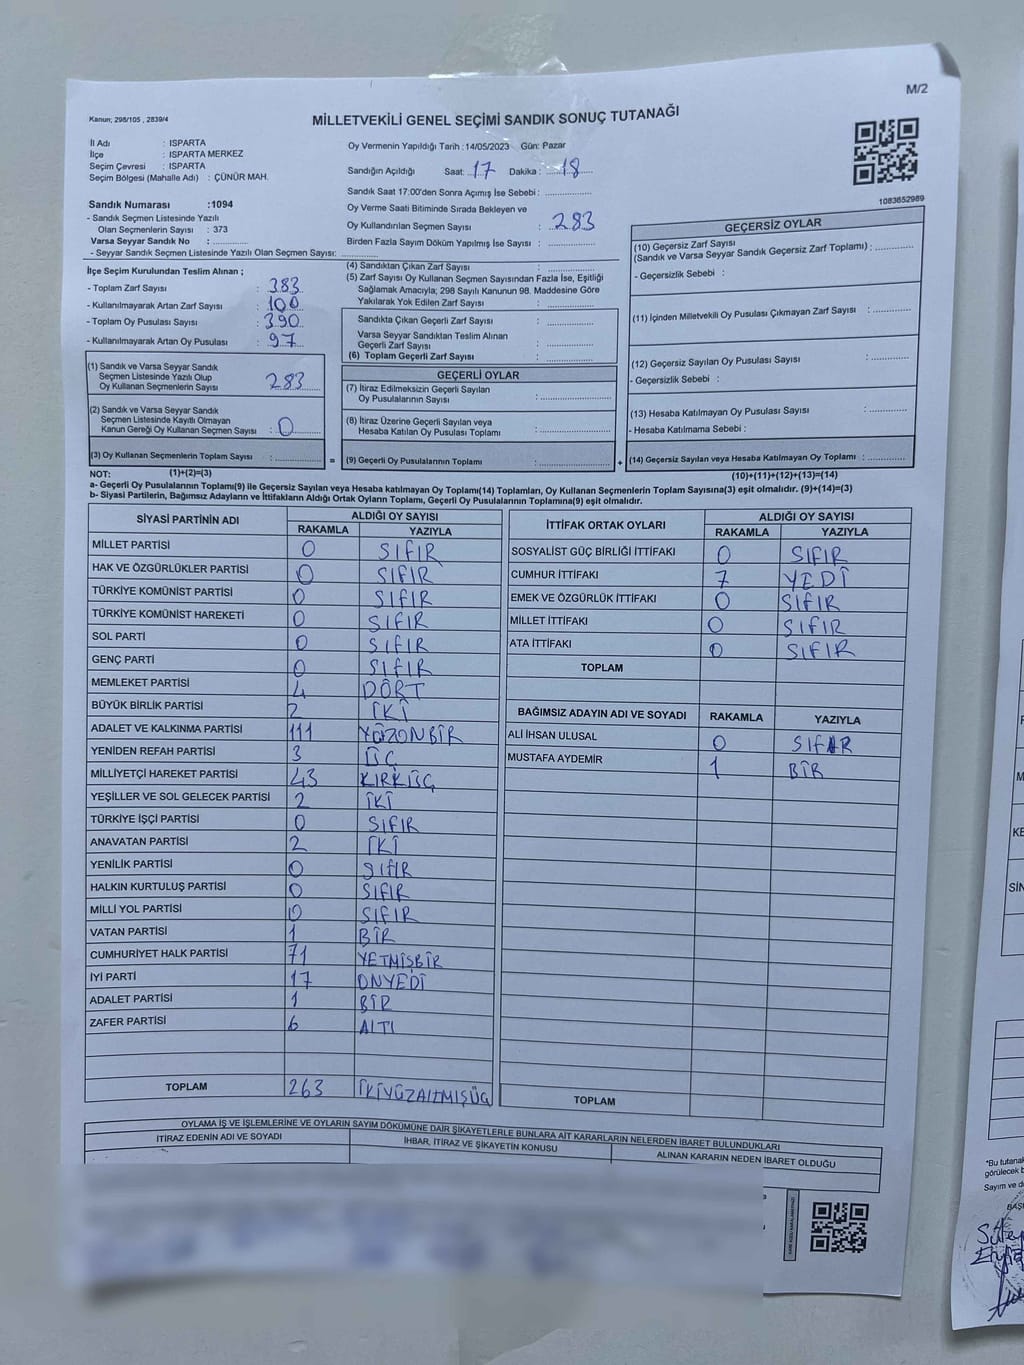 M/2
Kanun; 298/105 , 2839/4
MİLLETVEKİLİ GENEL SEÇİMİ SANDIK SONUÇ TUTANAĞI
İl Adı : ISPARTA
İlçe : ISPARTA MERKEZ
Seçim Çevresi : ISPARTA
Seçim Bölgesi (Mahalle Adı) : ÇÜNÜR MAH.
Sandık Numarası :1094
- Sandık Seçmen Listesinde Yazılı
Olan Seçmenlerin Sayısı : 373
Varsa Seyyar Sandık No : ..............
- Seyyar Sandık Seçmen Listesinde Yazılı Olan Seçmen Sayısı: ..............
Oy Vermenin Yapıldığı Tarih :14/05/2023 Gün: Pazar
Sandığın Açıldığı Saat: 17 Dakika : 18
Sandık Saat 17:00'den Sonra Açımış İse Sebebi : ..............
Oy Verme Saati Bitiminde Sırada Bekleyen ve
Oy Kullandırılan Seçmen Sayısı : 283
Birden Fazla Sayım Döküm Yapılmış İse Sayısı : ..............
1083652989
İlçe Seçim Kurulundan Teslim Alınan ;
- Toplam Zarf Sayısı : 383
- Kullanılmayarak Artan Zarf Sayısı : 100
- Toplam Oy Pusulası Sayısı : 390
- Kullanılmayarak Artan Oy Pusulası : 97
(1) Sandık ve Varsa Seyyar Sandık
Seçmen Listesinde Yazılı Olup
Oy Kullanan Seçmenlerin Sayısı : 283
(2) Sandık ve Varsa Seyyar Sandık
Seçmen Listesinde Kayıtlı Olmayan
Kanun Gereği Oy Kullanan Seçmen Sayısı : 0
(3) Oy Kullanan Seçmenlerin Toplam Sayısı : ..............
(4) Sandıktan Çıkan Zarf Sayısı : ..............
(5) Zarf Sayısı Oy Kullanan Seçmen Sayısından Fazla İse, Eşitliği
Sağlamak Amacıyla; 298 Sayılı Kanunun 98. Maddesine Göre
Yakılarak Yok Edilen Zarf Sayısı : ..............
Sandıkta Çıkan Geçerli Zarf Sayısı : ..............
Varsa Seyyar Sandıktan Teslim Alınan
Geçerli Zarf Sayısı : ..............
(6) Toplam Geçerli Zarf Sayısı : ..............
GEÇERLİ OYLAR
(7) İtiraz Edilmeksizin Geçerli Sayılan
Oy Pusulalarının Sayısı : ..............
(8) İtiraz Üzerine Geçerli Sayılan veya
Hesaba Katılan Oy Pusulaları Toplamı : ..............
= (9) Geçerli Oy Pusulalarının Toplamı : ..............
GEÇERSİZ OYLAR
(10) Geçersiz Zarf Sayısı
(Sandık ve Varsa Seyyar Sandık Geçersiz Zarf Toplamı) : ..............
- Geçersizlik Sebebi :
(11) İçinden Milletvekili Oy Pusulası Çıkmayan Zarf Sayısı : ..............
(12) Geçersiz Sayılan Oy Pusulası Sayısı : ..............
- Geçersizlik Sebebi :
(13) Hesaba Katılmayan Oy Pusulası Sayısı : ..............
- Hesaba Katılmama Sebebi :
+ (14) Geçersiz Sayılan veya Hesaba Katılmayan Oy Toplamı : ..............
NOT: (1)+(2)=(3)
(10)+(11)+(12)+(13)=(14)
a- Geçerli Oy Pusulalarının Toplamı(9) ile Geçersiz Sayılan veya Hesaba katılmayan Oy Toplamı(14) Toplamları, Oy Kullanan Seçmenlerin Toplam Sayısına(3) eşit olmalıdır. (9)+(14)=(3)
b- Siyasi Partilerin, Bağımsız Adayların ve İttifakların Aldığı Ortak Oyların Toplamı, Geçerli Oy Pusulalarının Toplamına(9) eşit olmalıdır.
SİYASİ PARTİNİN ADI ALDIĞI OY SAYISI
RAKAMLA YAZIYLA
MİLLET PARTİSİ 0 SIFIR
HAK VE ÖZGÜRLÜKLER PARTİSİ 0 SIFIR
TÜRKİYE KOMÜNİST PARTİSİ 0 SIFIR
TÜRKİYE KOMÜNİST HAREKETİ 0 SIFIR
SOL PARTİ 0 SIFIR
GENÇ PARTİ 0 SIFIR
MEMLEKET PARTİSİ 4 DÖRT
BÜYÜK BİRLİK PARTİSİ 2 İKİ
ADALET VE KALKINMA PARTİSİ 111 YÜZONBİR
YENİDEN REFAH PARTİSİ 3 ÜÇ
MİLLİYETÇİ HAREKET PARTİSİ 43 KIRKÜÇ
YEŞİLLER VE SOL GELECEK PARTİSİ 2 İKİ
TÜRKİYE İŞÇİ PARTİSİ 0 SIFIR
ANAVATAN PARTİSİ 2 İKİ
YENİLİK PARTİSİ 0 SIFIR
HALKIN KURTULUŞ PARTİSİ 0 SIFIR
MİLLİ YOL PARTİSİ 0 SIFIR
VATAN PARTİSİ 1 BİR
CUMHURİYET HALK PARTİSİ 71 YETMİŞBİR
İYİ PARTİ 17 ONYEDİ
ADALET PARTİSİ 1 BİR
ZAFER PARTİSİ 6 ALTI
TOPLAM 263 İKİYÜZALTMIŞÜÇ
İTTİFAK ORTAK OYLARI ALDIĞI OY SAYISI
RAKAMLA YAZIYLA
SOSYALİST GÜÇ BİRLİĞİ İTTİFAKI 0 SIFIR
CUMHUR İTTİFAKI 7 YEDİ
EMEK VE ÖZGÜRLÜK İTTİFAKI 0 SIFIR
MİLLET İTTİFAKI 0 SIFIR
ATA İTTİFAKI 0 SIFIR
TOPLAM
BAĞIMSIZ ADAYIN ADI VE SOYADI RAKAMLA YAZIYLA
ALİ İHSAN ULUSAL 0 SIFIR
MUSTAFA AYDEMİR 1 BİR
TOPLAM
OYLAMA İŞ VE İŞLEMLERİNE VE OYLARIN SAYIM DÖKÜMÜNE DAİR ŞİKAYETLERLE BUNLARA AİT KARARLARIN NELERDEN İBARET BULUNDUKLARI
İTİRAZ EDENİN ADI VE SOYADI İHBAR, İTİRAZ VE ŞİKAYETİN KONUSU ALINAN KARARIN NEDEN İBARET OLDUĞU
*Bu tutanak
görülecek
Sayım ve